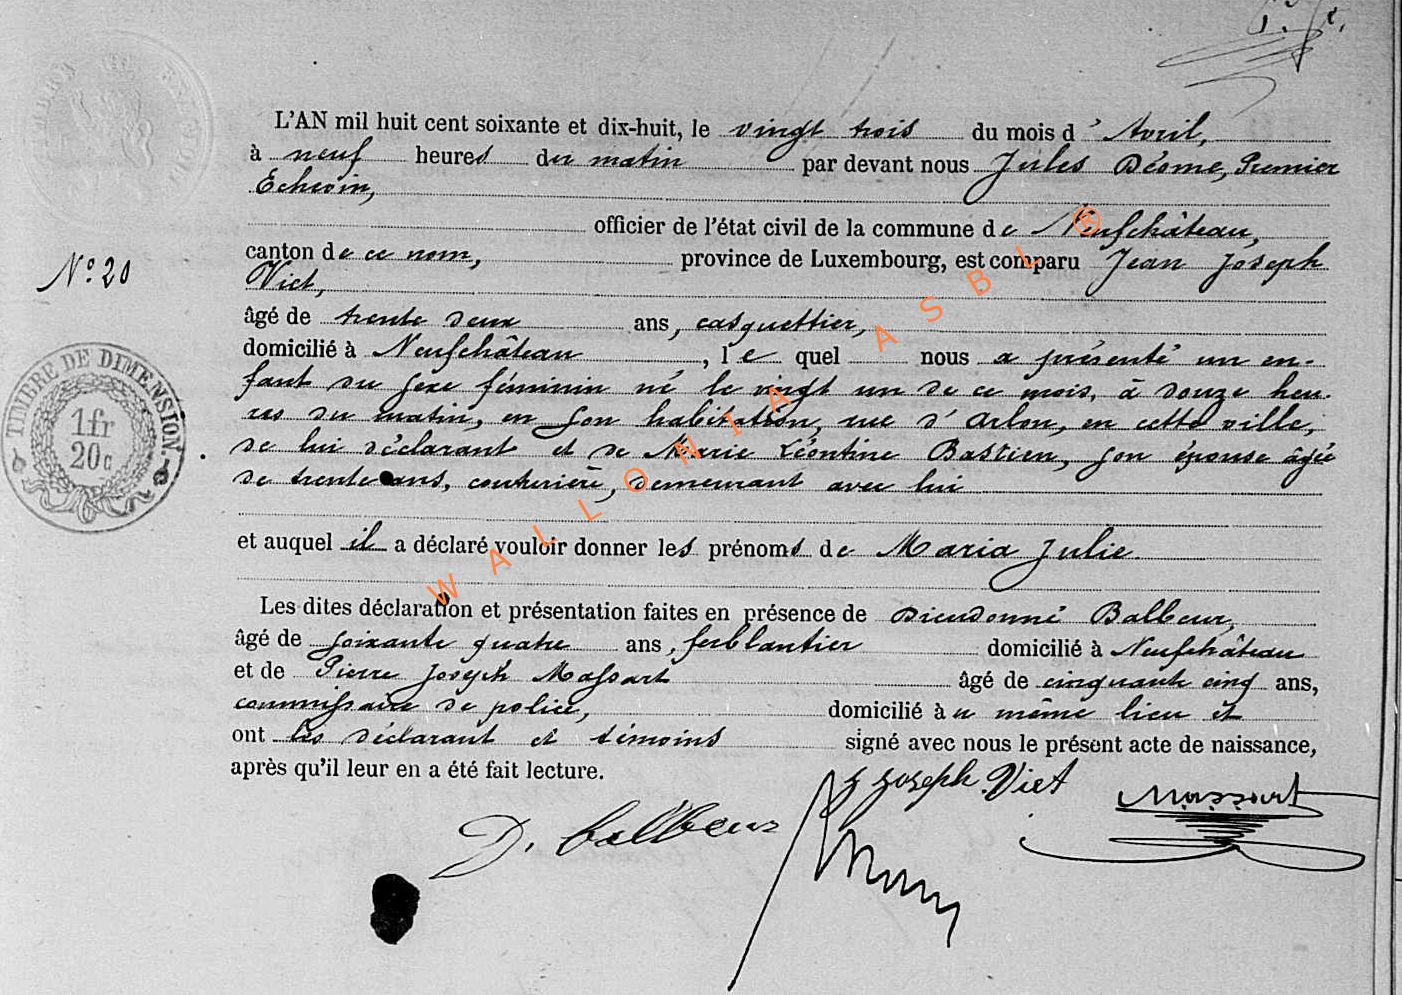 L'AN mil huit cent soixante et dix-huit, le vingt trois du mois d'Avril,
à neuf heures du matin par devant nous Jules Déome, Premier
Echevin,
officier de l'état civil de la commune de Neufchâteau,
canton de ce nom, province de Luxembourg, est comparu Jean Joseph
N° 20
Viet,
âgé de trente deux ans, casquettier,
domicilié à Neufchâteau, le quel nous a présenté un en-
fant du sexe féminin né le vingt un de ce mois, à douze heu-
res du matin, en son habitation, rue d'Arlon, en cette ville,
de lui déclarant et de Marie Léontine Bastien, son épouse âgée
de trente ans, couturière, demeurant avec lui
et auquel il a déclaré vouloir donner les prénoms de Maria Julie.
Les dites déclaration et présentation faites en présence de Dieudonné Balbeur,
âgé de soixante quatre ans, ferblantier domicilié à Neufchâteau
et de Pierre Joseph Massart âgé de cinquante cinq ans,
commissaire de police, domicilié au même lieu et
ont les déclarant et témoins signé avec nous le présent acte de naissance,
après qu'il leur en a été fait lecture.
J Joseph Viet
Massart
D. Balbeur
TIMBRE DE DIMENSION.
1fr
20c
WALLONIA ASBL ®